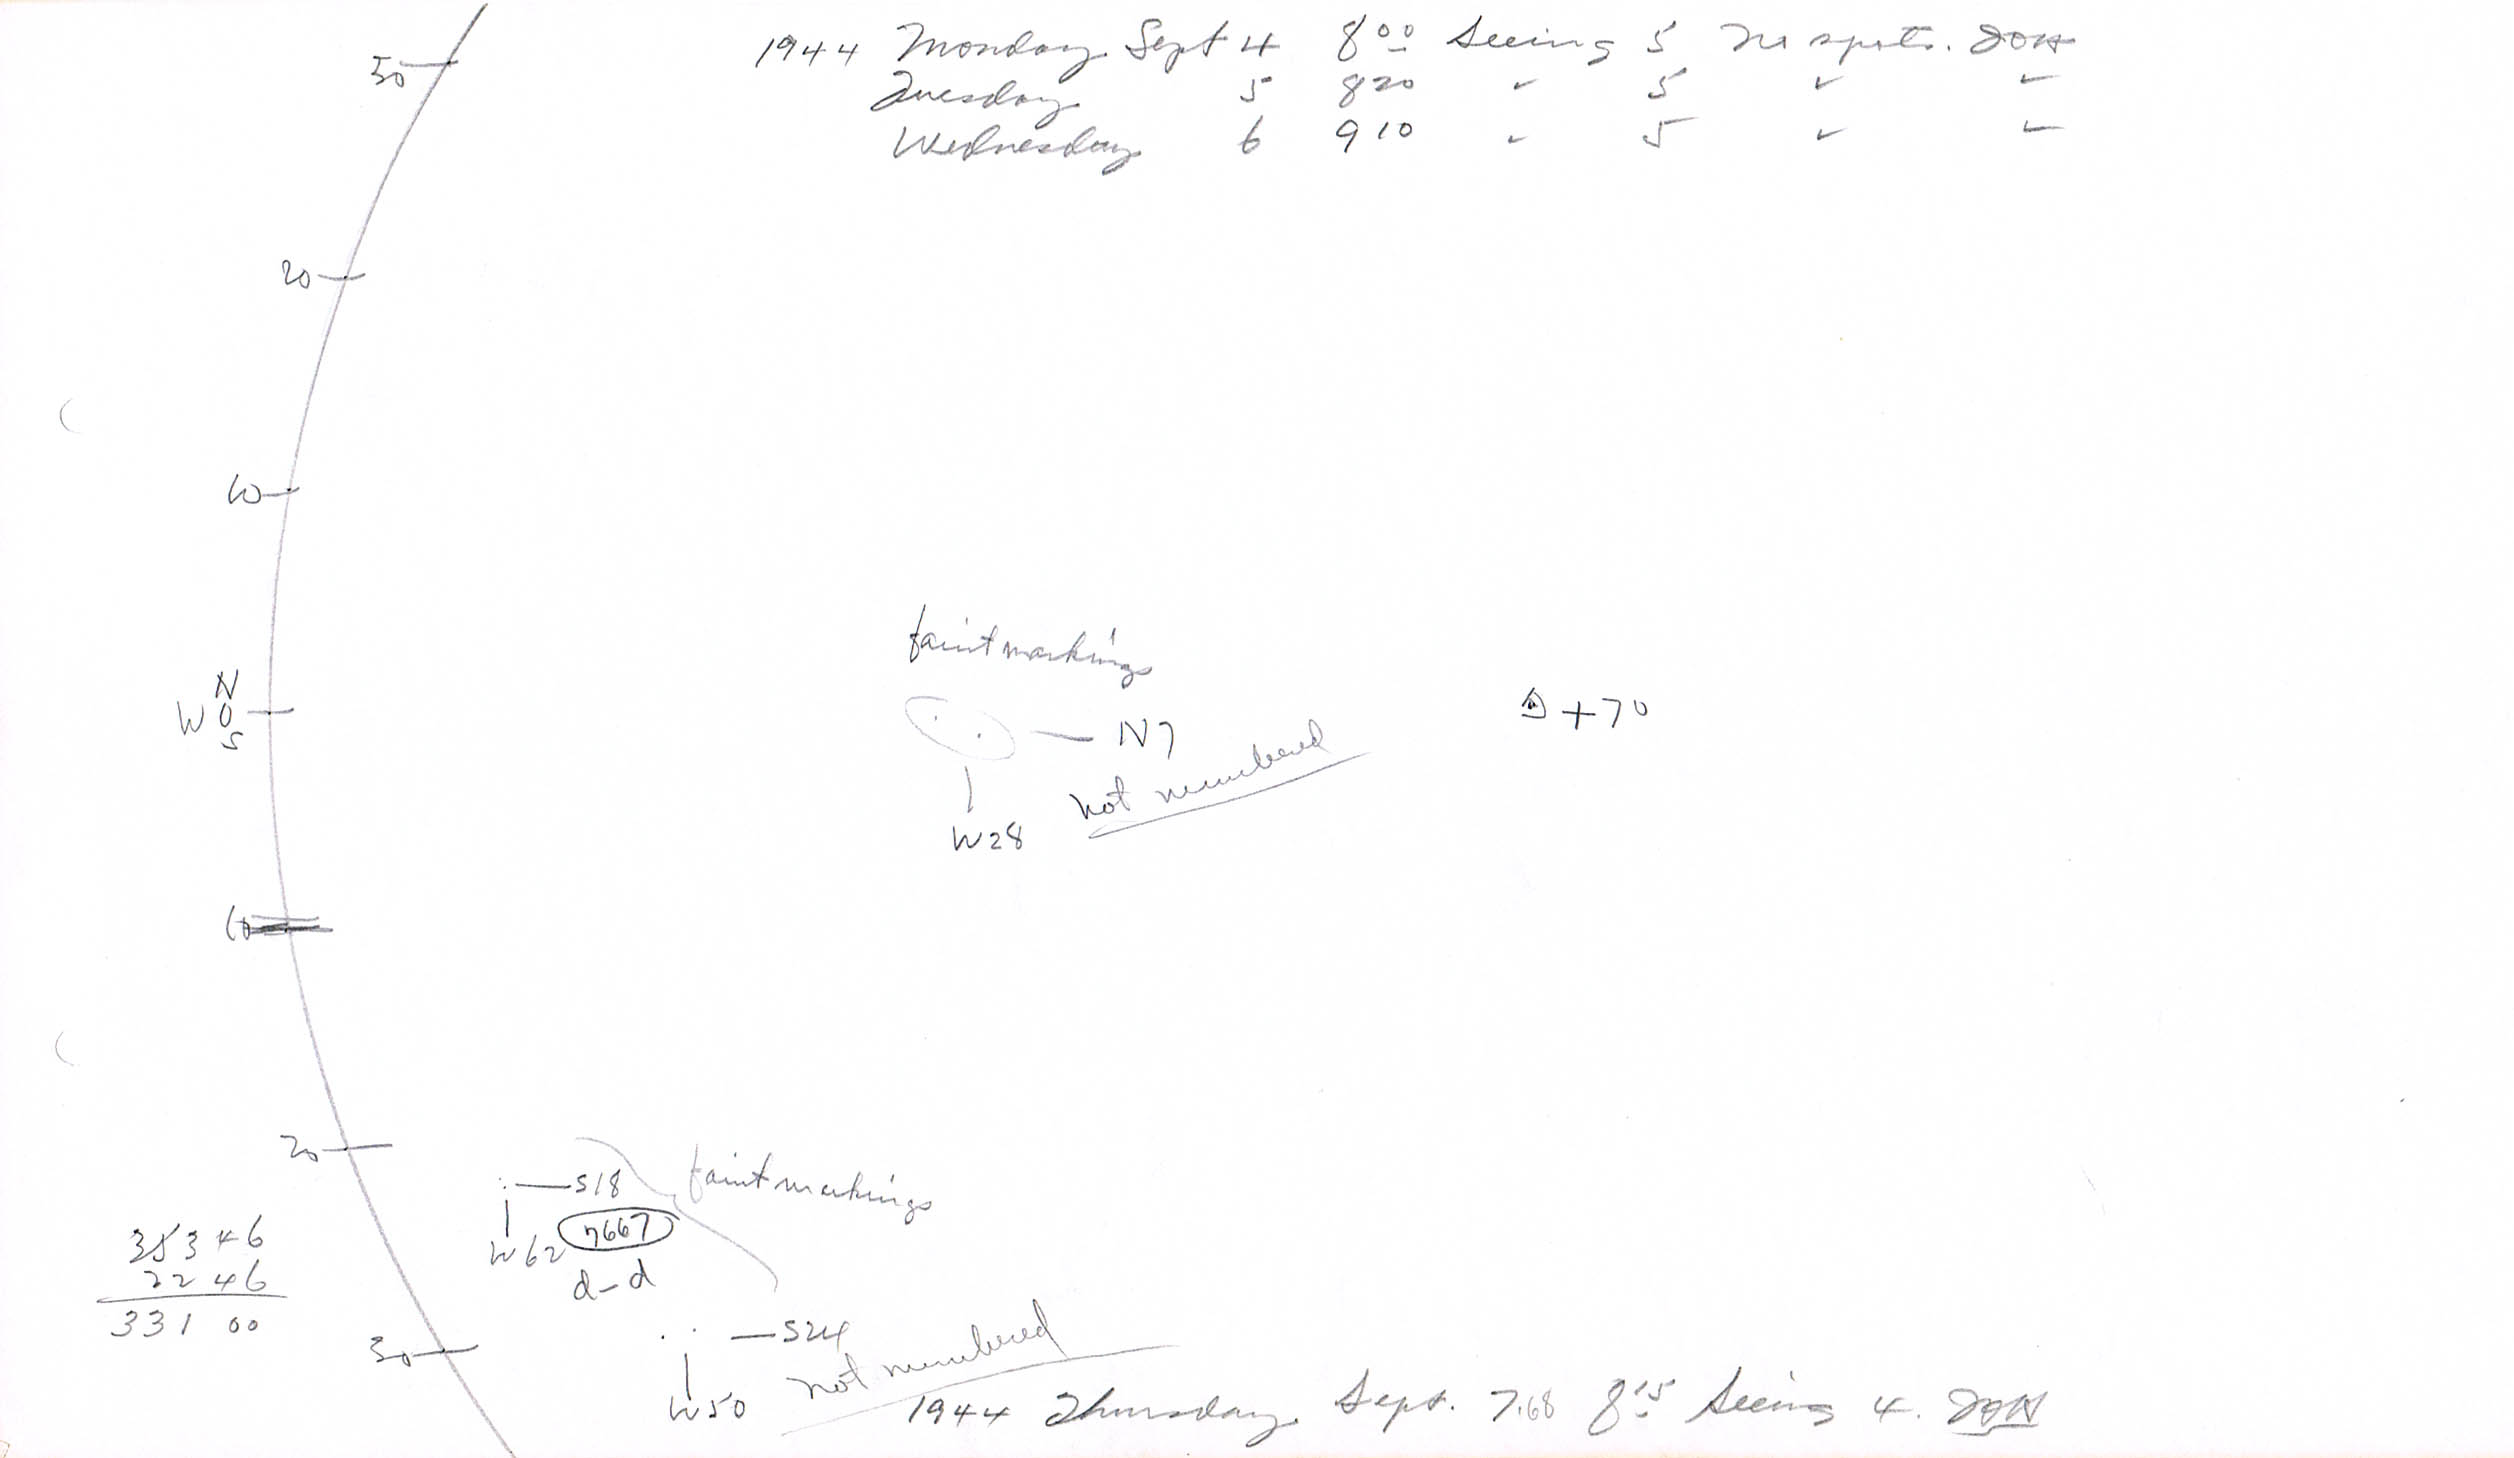 1944 Monday Sept 4 8 00 Seeing 5 No spots. JOH
Tuesday 5 8 20 " 5 " "
Wednesday 6 9 10 " 5 " "
30
20
10
faint markings
N
W 0
S
N7
+70
not numbered
W28
10
20
S18
faint markings
W62
7667
d-d
353 46
22 46
331 00
30
S24
not numbered
W50
1944 Thursday Sept. 7.68 8 15 Seeing 4. JOH